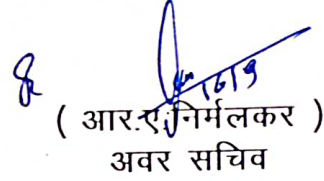 16/9
( आर.ए.निर्मलकर )
अवर सचिव